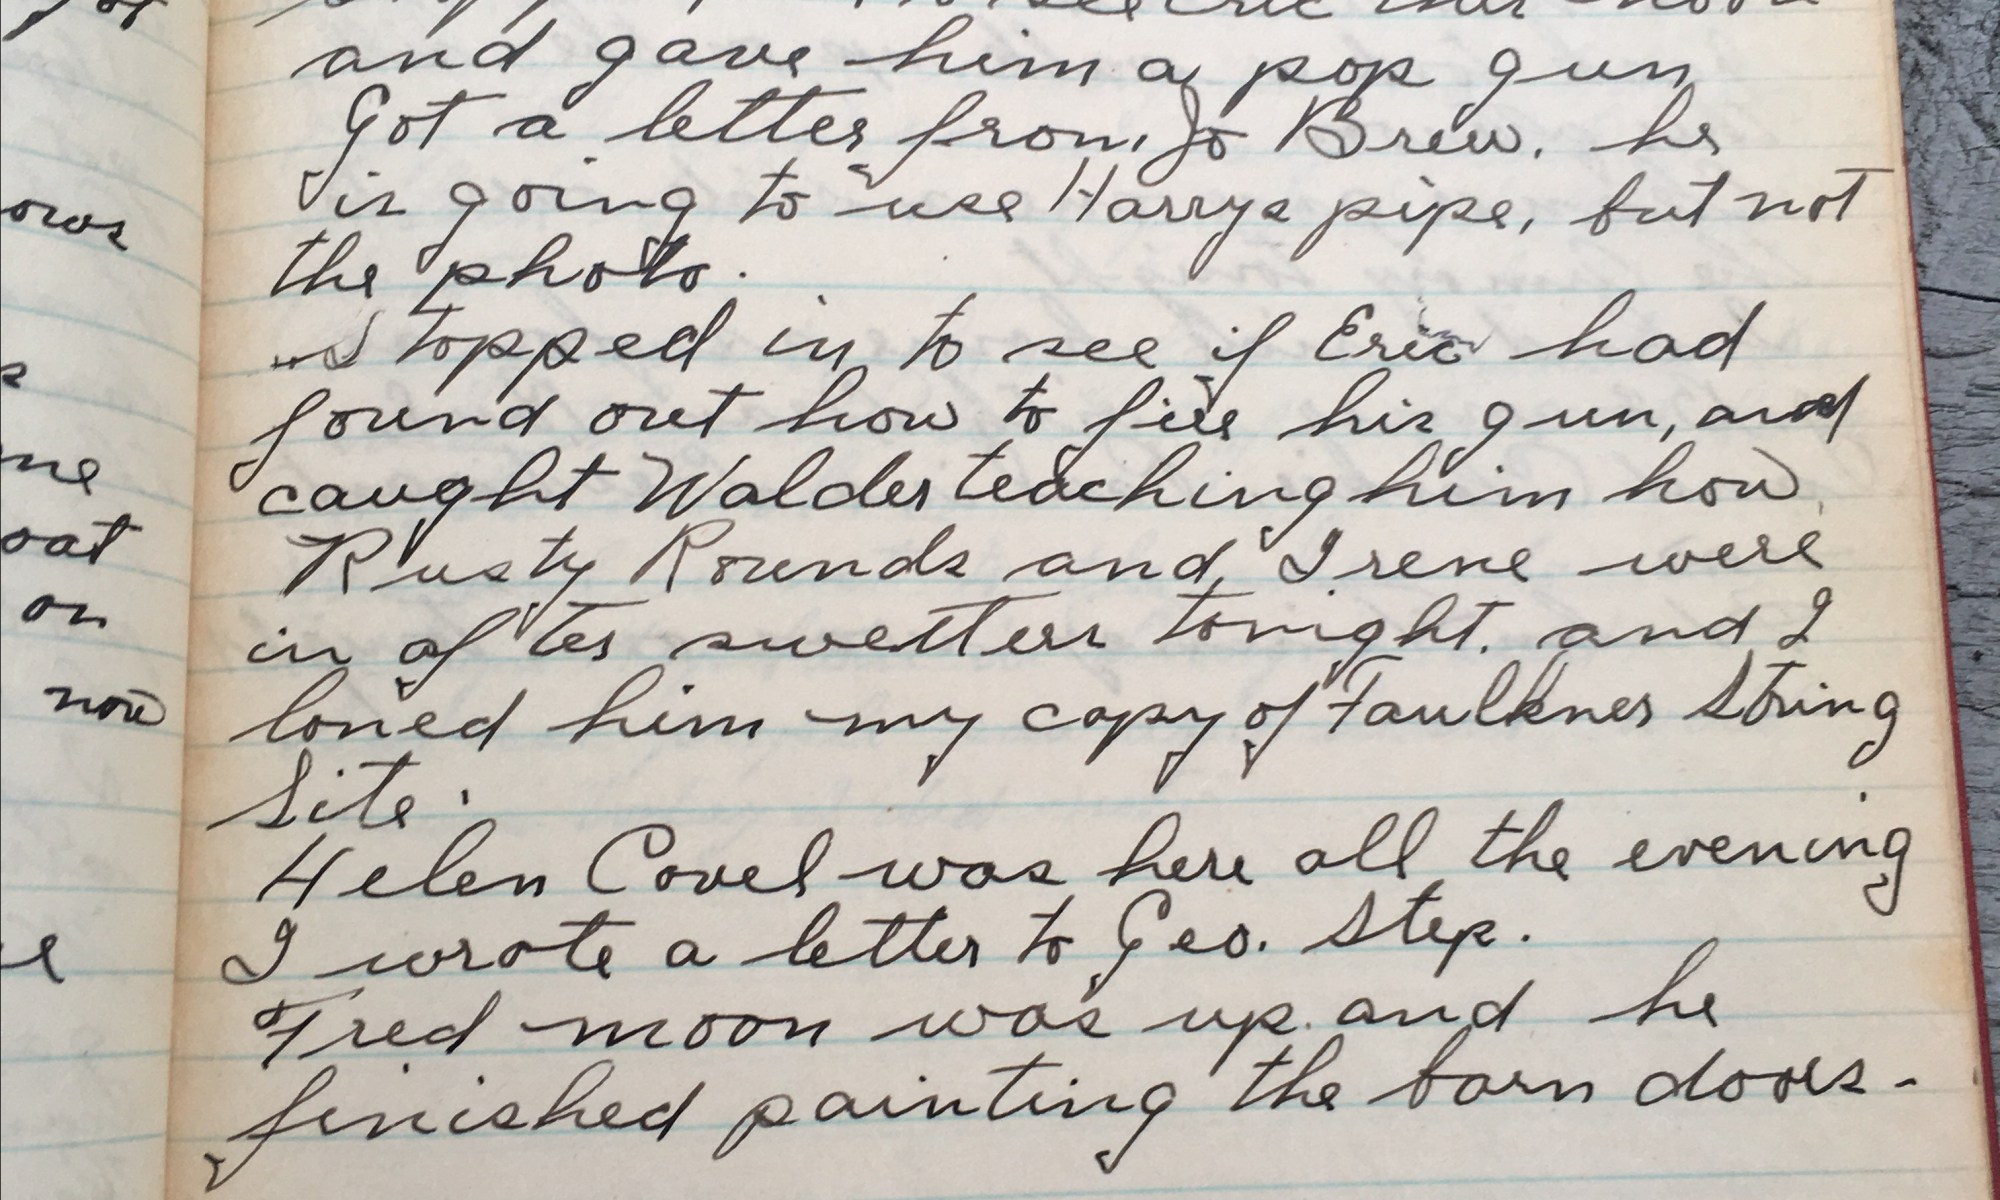 to see Eric this noon
and gave him a pop gun
Got a letter from Jo Brew. he
is going to use Harrys pipe, but not
the photo.
Stopped in to see if Eric had
found out how to fire his gun, and
caught Walder teaching him how
Rusty Rounds and Irene were
in after swetters tonight. and I
loned him my copy of Faulkner String
Site.
Helen Covel was here all the evening
I wrote a letter to Geo. Step.
Fred moon was up. and he
finished painting the barn doors-
ows
me
oat
on
now